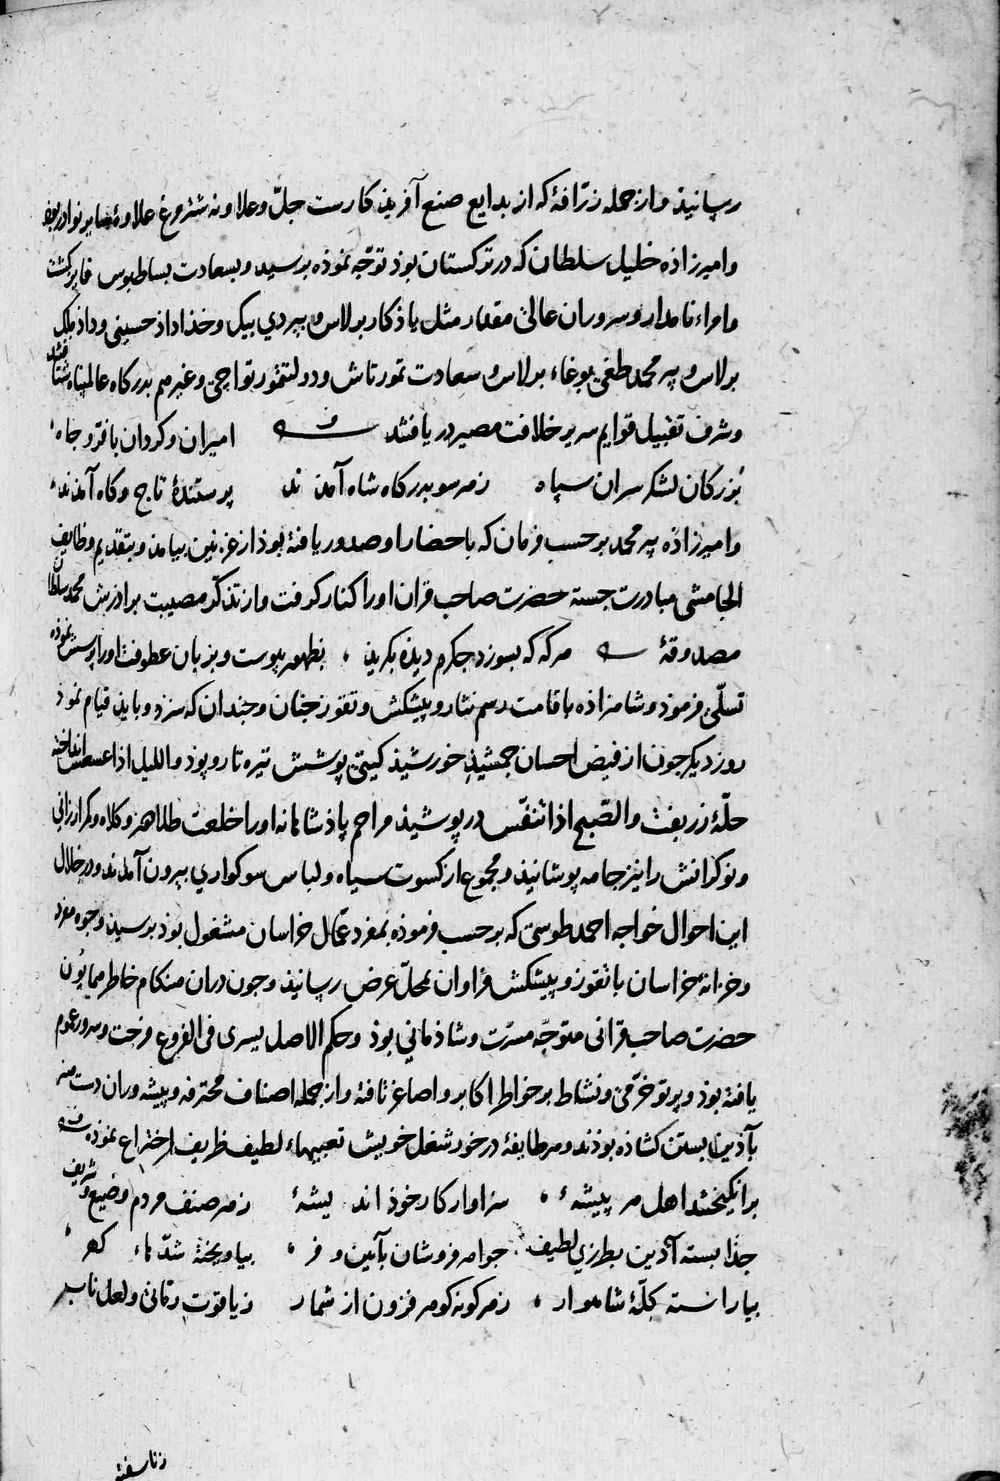 رسانید و از جمله زرّافهٔ که از بدایع صنع آفریدکارست جلّ و علا و نه شترمرغ علاوهٔ سایر نوادر بود
و امیرزاذه خلیل سلطان که در ترکستان بوذ توجّه نموذه برسید و بسعادت بساط بوس فایز کشت
و امراء نامدار و سروران عالی مقدار مثل یاذکار برلاس و پیردی بیک و خذاداذ حسینی و داذ ملک
برلاس و پیر محمد طغی بوغاء برلاس و سعادت تمورتاش و دولتتمور تواجی و غیرهم بدرکاه عالمپناه شتافتند
و شرف تقبیل قوایم سریر خلافت مصیر دریافتند امیران و کردان با فرّ و جاه
بزرکان لشکر سران سپاه زهر سو بدرکاه شاه آمدند پرستندهٔ تاج و کاه آمدند
و امیرزاذه پیر محمد بر حسب فرمان که باحضار او صدور یافته بوذ از غزنین بیامد و بتقدیم وظایف
الجامشی مبادرت جسته حضرت صاحب قران او را کنار کرفت و از تذکّر مصیبت براذرش محمد سلطان
مصدوقهٔ هر که که بسوزد جکرم دیذه بکرید بظهور پیوست و بزبان عطوفت او را پرسش نموذه
تسلّی فرموذ و شاهزاذه باقامت رسم نثار و پیشکش و تقوز جنان و جندان که سزد و بایذ قیام نموذ
روز دیکر جون از فیض احسان جمشیذ خورشیذ کیتی پوشش تیره تار و پوذ و اللیل اذا عسعس انداخته
حلّهٔ زربفت و الصّبح اذا تنفّس در پوشیذ مراحم پاذشاهانه او را خلعت طلا دوز و کلاه و کمر ارزانی
و نوکرانش را نیز جامه پوشانیذ و مجموع از کسوت سیاه و لباس سوکواری بیرون آمدند و در خلال
این احوال خواجه احمد طوسی که بر حسب فرموذه بمفرد عمّال خراسان مشغول بوذ برسیذ و وجوه مفرد
و خزانهٔ خراسان با تقوز و پیشکش فراوان بمحلّ عرض رسانیذ و جون دران هنکام خاطر همایون
حضرت صاحب قرانی متوجّه مسرّت و شاذمانی بوذ و حکم الاصل یسری فی الفروع فرحت و سرور عموم
یافته بوذ و پرتو خرّمی و نشاط بر خواطر اکابر و اصاغر تافته و از جمله اصناف محترفه و پیشه وران دست هنر
بآذین بستن کشاذه بوذند و هر طایفهٔ در خور شغل خویش تعبیهاء لطیف ظریف اختراع نموذه
برانکیختند اهل هر پیشهٔ سزاوار کار خوذ اندیشهٔ زهر صنف مردم وضیع و شریف
جذا بسته آذین بطرزی لطیف جواهر فروشان بآیین و فر بیاویخته شدّهاء کهر
بیاراسته کلّهٔ شاهوار زهر کونه کوهر فزون از شمار زیاقوت رمّانی و لعل ناب
زنا سفته